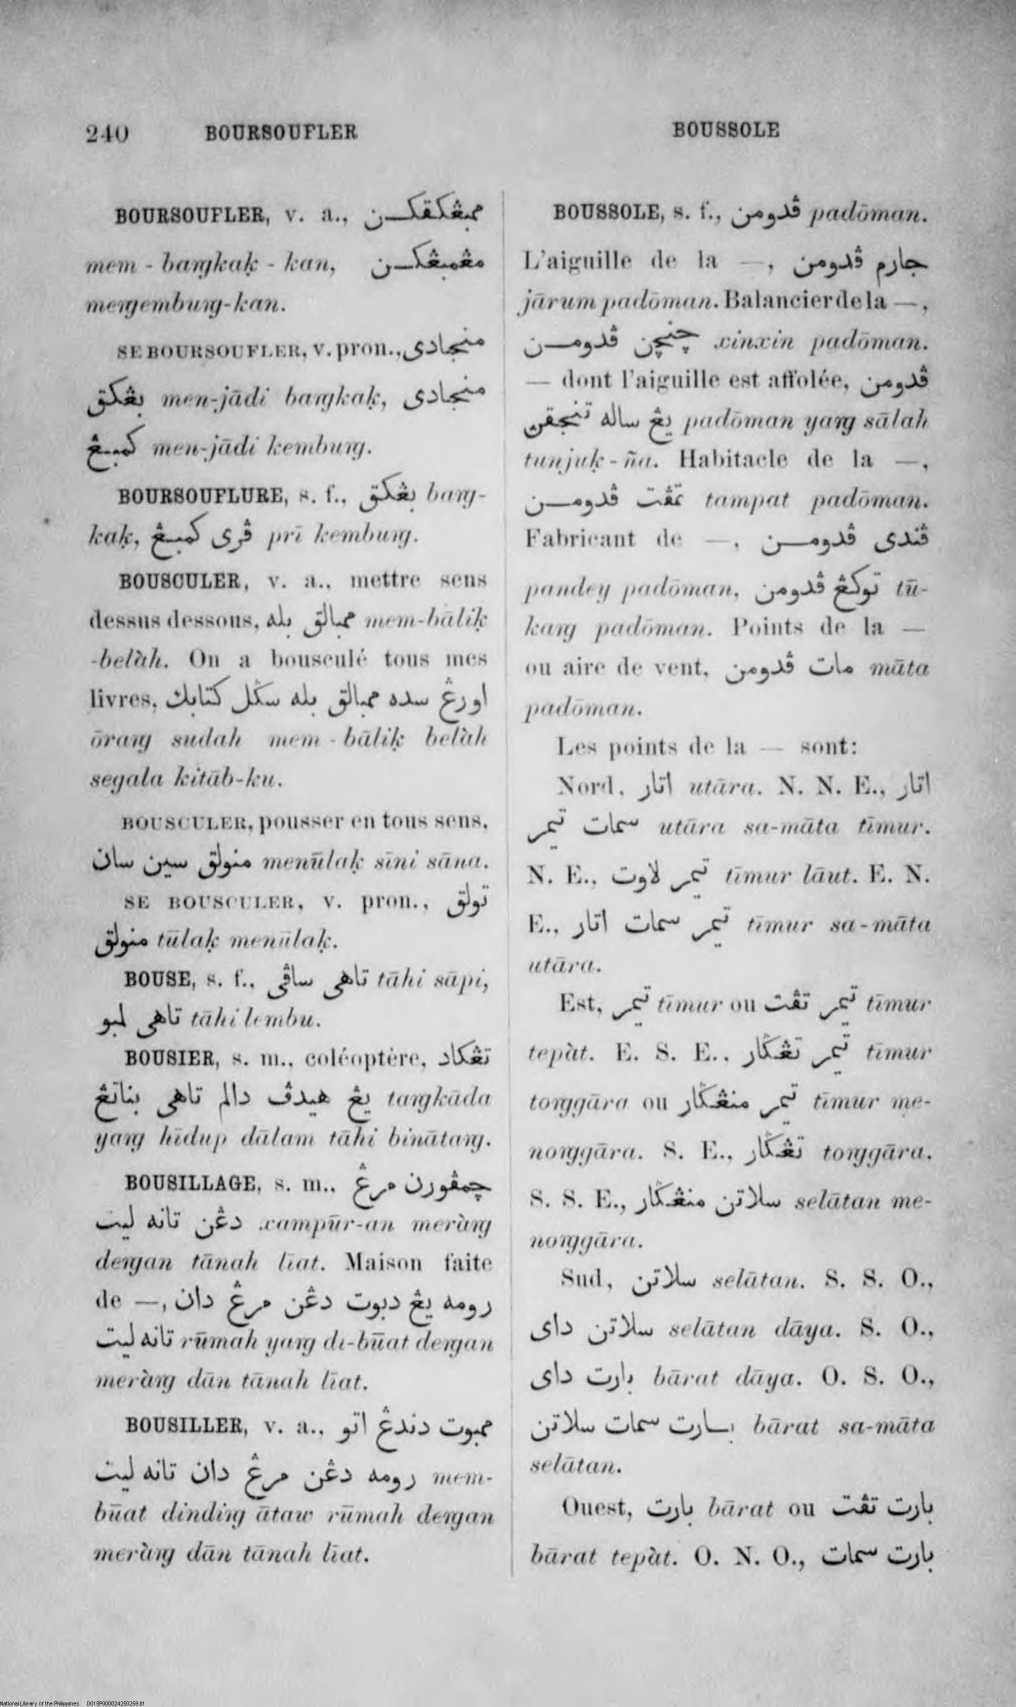 240 BOURSOUFLER BOUSSOLE
BOURSOUFLER, v. a., ممبڠكقكن
mem-baŋkaḳ-kan, مڠمبڠكن
meŋembuŋ-kan.
SE BOURSOUFLER, v. pron., منجادى
بڠكق men-jādi baŋkaḳ, منجادى
كمبڠ men-jādi kembuŋ.
BOURSOUFLURE, s. f., بڠكق baŋ-
kaḳ, ڤرى كمبڠ prī kembuŋ.
BOUSCULER, v. a., mettre sens
dessus dessous, ممبالق بله mem-bāliḳ
-belàh. On a bousculé tous mes
livres, اورڠ سده ممبالق بله سڬل كتابك
ōraŋ sudah mem-bāliḳ belàh
segala kitāb-ku.
BOUSCULER, pousser en tous sens,
منولق سين سان menūlaḳ sīni sāna.
SE BOUSCULER, v. pron., تولق
منولق tūlaḳ menūlaḳ.
BOUSE, s. f., تاهى ساڤى tāhi sāpi,
تاهى لمبو tāhi lembu.
BOUSIER, s. m., coléoptère, تڠكاد
يڠ هيدڤ دالم تاهى بناتڠ taŋkāda
yaŋ hīdup dālam tāhi binātaŋ.
BOUSILLAGE, s. m., چمڤورن مرڠ
دڠن تانه ليت xampūr-an meràŋ
deŋan tānah līat. Maison faite
de —, رومه يڠ دبوت دڠن مرڠ دان
تانه ليت rūmah yaŋ di-būat deŋan
meràŋ dān tānah līat.
BOUSILLER, v. a., ممبوت دندڠ اتو
رومه دڠن مرڠ دان تانه ليت mem-
būat dindiŋ ātaw rūmah deŋan
meràŋ dān tānah līat.
BOUSSOLE, s. f., ڤدومن padōman.
L'aiguille de la —, جارم ڤدومن
jārum padōman. Balancier de la —,
چنچن ڤدومن xinxin padōman.
— dont l'aiguille est affolée, ڤدومن
يڠ ساله تنجقن padōman yaŋ sālah
tunjuḳ-ña. Habitacle de la —,
تمڤت ڤدومن tampat padōman.
Fabricant de —, ڤندى ڤدومن
pandey padōman, توكڠ ڤدومن tū-
kaŋ padōman. Points de la —
ou aire de vent, مات ڤدومن māta
padōman.
Les points de la — sont:
Nord, اتار utāra. N. N. E., اتار
سمات تيمر utāra sa-māta tīmur.
N. E., تيمر لاوت tīmur lāut. E. N.
E., تيمر سمات اتار tīmur sa-māta
utāra.
Est, تيمر tīmur ou تيمر تڤت tīmur
tepàt. E. S. E., تيمر تڠڬار tīmur
toŋgāra ou تيمر منڠڬار tīmur me-
noŋgāra. S. E., تڠڬار toŋgāra.
S. S. E., سلاتن منڠڬار selātan me-
noŋgāra.
Sud, سلاتن selātan. S. S. O.,
سلاتن داى selātan dāya. S. O.,
بارت داى bārat dāya. O. S. O.,
بارت سمات سلاتن bārat sa-māta
selātan.
Ouest, بارت bārat ou بارت تڤت
bārat tepàt. O. N. O., بارت سمات